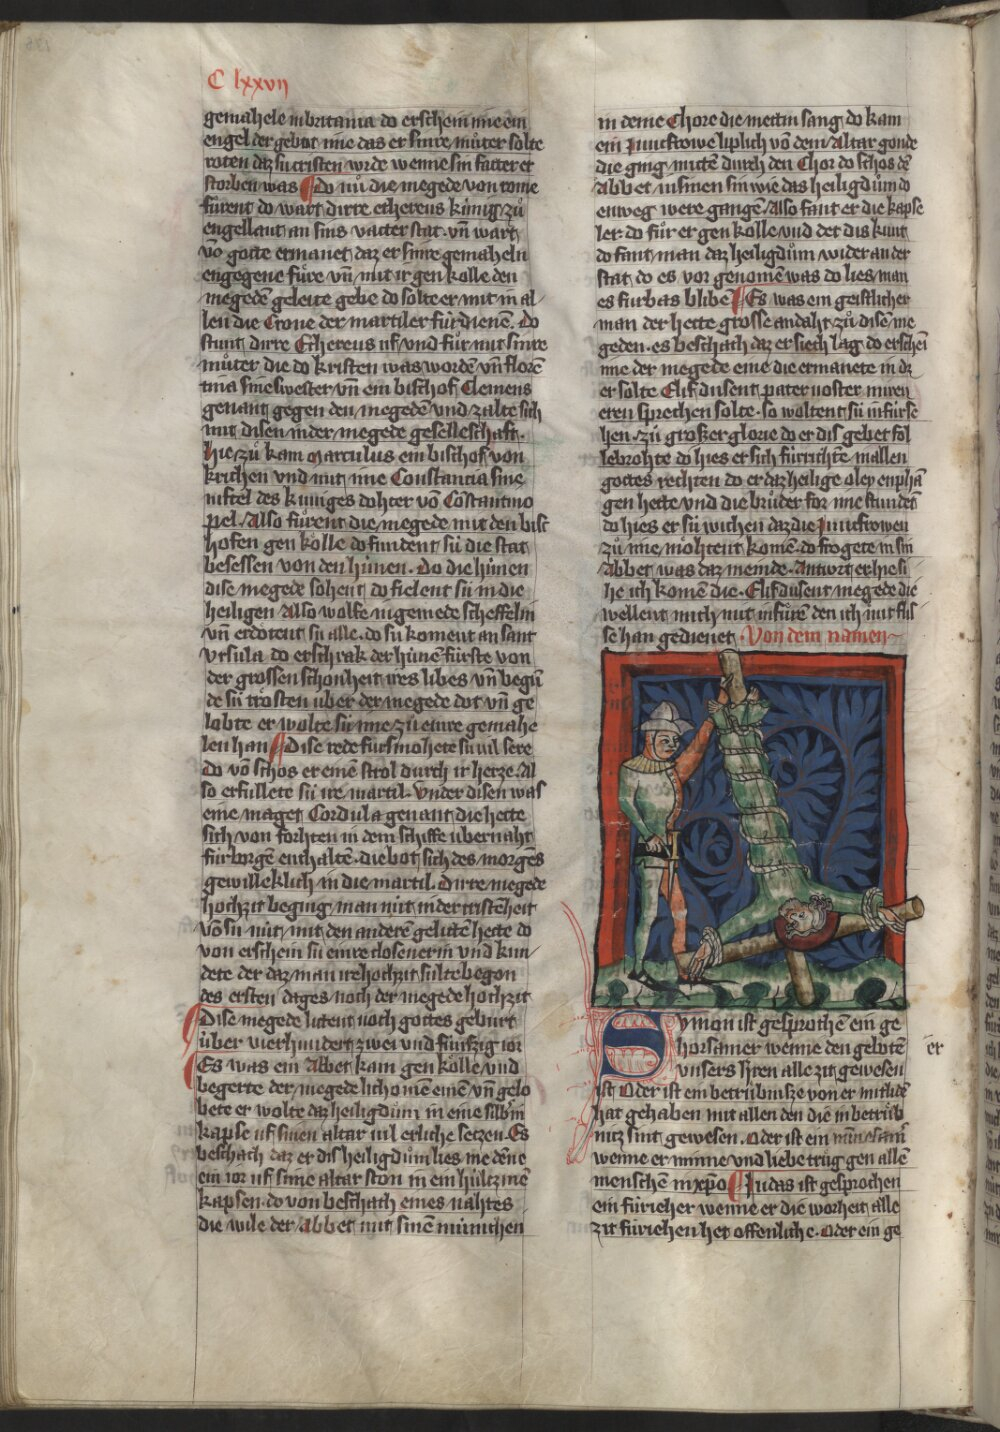 C lxxvij
gemahele in britania do erschein ime ein
engel der gebot ime das er sinre můter solte
roten daz sú cristen wrde wenne sin fatter er
storben was Do nů die megede von rome
fůrent do wart dirre ethereus kúnig zů
engellant an sins vatter stat· vñ wart
võ gotte ermanet daz er sinre gemaheln
engegene fůre vñ mit ir gen kolle den
megedẽ geleite gebe do solte er mit in al-
len die Crone der martiler fúrdienẽ. Do
stunt dirre Ethereus uf vnd fůr mit sinre
můter die do kristen was wordẽ vñ florẽ
tina sine swester vñ ein bischof Clemens
genant gegen den megedẽ vnd zalte sich
mit disen in der megede geselleschaft·
Hie zů kam marculus ein bischof von
krichen vnd mit ime Constancia sine
niftel des kúniges dohter võ Cõstantino
pel· Also fůrent die megede mit den bisc
hofen gen kólle do fundent sú die stat
besessen von den húnen. Do die húnen
dise megede sohent do fielent sú in die
heiligen Also wolfe in gemede scheffelin
vñ erdótent sú alle· do sú koment an sant
vrsula do erschrak der húnẽ fúrste von
der grossen schonheit ires libes vñ begũ
de sú trósten úber der megede dot vñ ge
lobte er wolte sú ime zů eiure gemahe
len han Dise rede fúrsmohete sú vil sere
Do võ schos er einẽ strol durch ir herze· Al
so erfullete sú ire martil· Vnder disen was
eine maget Cordula genant die hette
sich von forhten in dem schiffe úbernaht
fúrborgẽ enthaltẽ· die bot sich des morgẽs
gewilleklich in die martil. Dirre megede
hochzit beging man nút in der cristẽheit
võ sú nút mit den anderẽ gelittẽ hette do
von erschein sú einre closenerin vnd kun-
dete der daz man ire hochzit sulte begon
des ersten dages noch der megede hochzit
Dise megede littent noch gottes geburt
úber vierhundert zwei vnd fúnfzig ior
Es was ein Abbet kam gen kólle vnd
begerte der megede lichomen einẽ vñ gelo
bete er wolte daz heiligdům in eine silbrin
kapse uf sinen altar vil erliche setzen· Es
beschach daz er dis heiligdům lies me dẽne
ein ior uf sime altar ston in eim húltzinẽ
kapsen· do von beschach eines nahtes
die wile der Abbet mit sinẽ múnichen
in deme Chore die mettin sang do kam
ein Juncfrowe liplich võ dem altar gonde
die ging mittẽ durch den Chor do schos dẽ
Abbet in sinen sin wie das heiligdům do
enweg were gangẽ· Also fant er die kapse
ler do fůr er gen kólle vnd det dis kunt
do fant man daz heiligdům wider an der
stat do es vor genomẽ was do lies man
es fúrbas blibẽ Es was ein geistlicher
man der hette grosse andaht zů disẽ me
geden· es beschach daz er siech lag do erschei
ime der megede eine die ermanete in dz
er solte Elif dusent pater noster in iren
eren sprechen solte· so woltent sú in fúrse
hen· zů groszer glorie do er dis gebet fol
lebrohte do hies er sich fúrrichtẽ in allen
gottes rechten do er daz heilige oley enphã
gen hette vnd die brúder for ime stundent
do hies er sú wichen daz die Juncfrowen
zů ime móhtent komẽ· do frogete in sin
Abbet was daz meinde· Antwort er hie si
he ich komẽ die· Elif dusent megede die
wellent mich mit in fúrẽ den ich mit flis
se han gedienet Von dem namen
Symon ist gesprochẽ ein ge
horsamer wenne den gebotẽ er
vnsers h̃ren alle zit gewesen
ist Oder ist ein betrúbnisze von er mitlidẽ
hat gehaben mit allen den die in betrúb
nitz sint gewesen· Oder ist ein minnesam̃
wenne er minne vnd liebe trůg gen allẽ
menschẽ in xp̃o Judas ist gesprochen
ein fúricher wenne er die worheit alle
zit fúriehen het offenliche· Oder ein ge